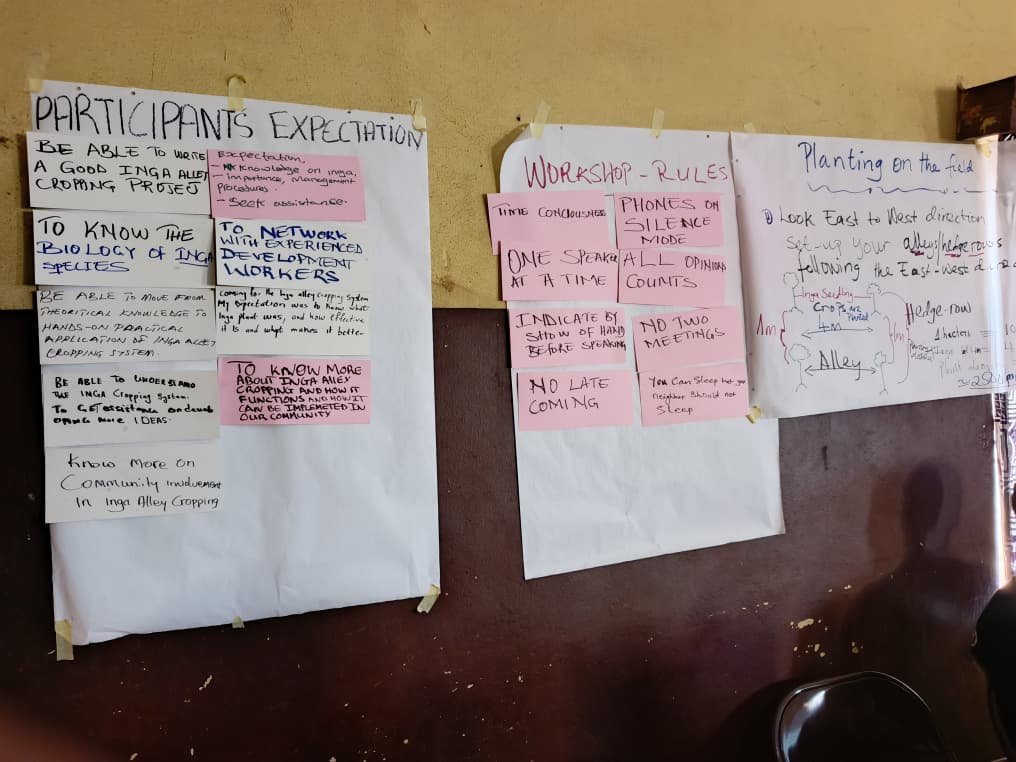 PARTICIPANTS EXPECTATION
BE ABLE TO WRITE
A GOOD INGA ALLEY
CROPPING PROJEJ
Expectation
- Knowledge on inga,
- importance, Management
procedures.
- Seek assistance.
TO KNOW THE
BIOLOGY OF INGA
SPECIES
TO NETWORK
WITH EXPERIENCED
DEVELOPMENT
WORKERS
BE ABLE TO MOVE FROM
THEORITICAL KNOWLEDGE TO
HANDS-ON PRACTICAL
APPLICATION OF INGA ALLEY
CROPPING SYSTEM.
Coming for the Inga alley cropping system
My expectation was to know what
Inga plant was, and how effective
it is and what makes it better
BE ABLE TO UNDERSTAND
THE INGA Cropping System.
To GET assistance on develo
oping more IDEAS.
TO KNOW MORE
ABOUT INGA ALLEY
CROPPING AND HOW IT
FUNCTIONS AND HOW IT
CAN BE IMPLEMETED IN
OUR COMMUNITY
Know More on
Community involvement
In Inga Alley Cropping
WORKSHOP - RULES
TIME CONCIOUSNESS
PHONES ON
SILENCE
MODE
ONE SPEAKER
AT A TIME
ALL OPINIONS
COUNTS
INDICATE BY
SHOW OF HAND
BEFORE SPEAKING
NO TWO
MEETINGS
NO LATE
COMING
You Can Sleep but your
neighbor Should not
Sleep
Planting on the field
Look East to West direction
Set-up your alleys/hedgerows
following the East-West
Inga Seedling
Crops are
Planted
4m
1m
1m
Alley
Hedge-row
1 hectare